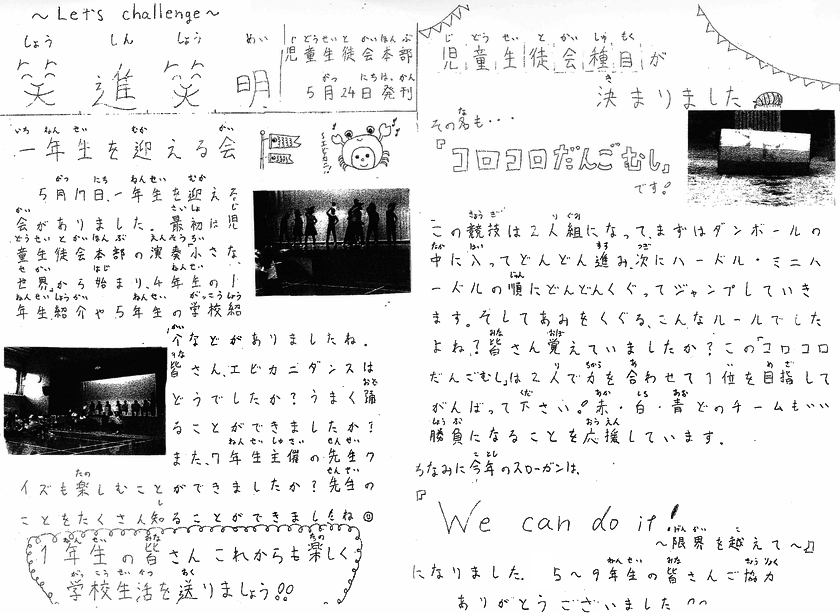 ～Let's challenge～
笑進笑明
児童生徒会本部
5月24日発刊
一年生を迎える会
5月17日、一年生を迎える
会がありました。最初は児
童生徒会本部の演奏「小さな
世界」から始まり、4年生の1
年生紹介や5年生の学校紹
介などがありましたね。
皆さん、エビカニダンスは
どうでしたか？うまく踊
ることができましたか？
また、7年生主催の先生ク
イズも楽しむことができましたか？先生の
ことをたくさん知ることができましたね
1年生の皆さんこれからも楽しく
学校生活を送りましょう!!
児童生徒会種目が
決まりました
その名も・・・
『コロコロだんごむし』
です!
この競技は2人組になって、まずはダンボールの
中に入ってどんどん進み、次にハードル・ミニハ
ードルの順にどんどんくぐってジャンプしていき
ます。そしてあみをくぐる、こんなルールでした
よね？皆さん覚えていましたか？この「コロコロ
だんごむし」は2人で力を合わせて1位を目指して
がんばって下さい!赤・白・青どのチームもいい
勝負になることを応援しています。
ちなみに今年のスローガンは、
『We can do it!
～限界を越えて～』
になりました。5～9年生の皆さんご協力
ありがとうございました!!